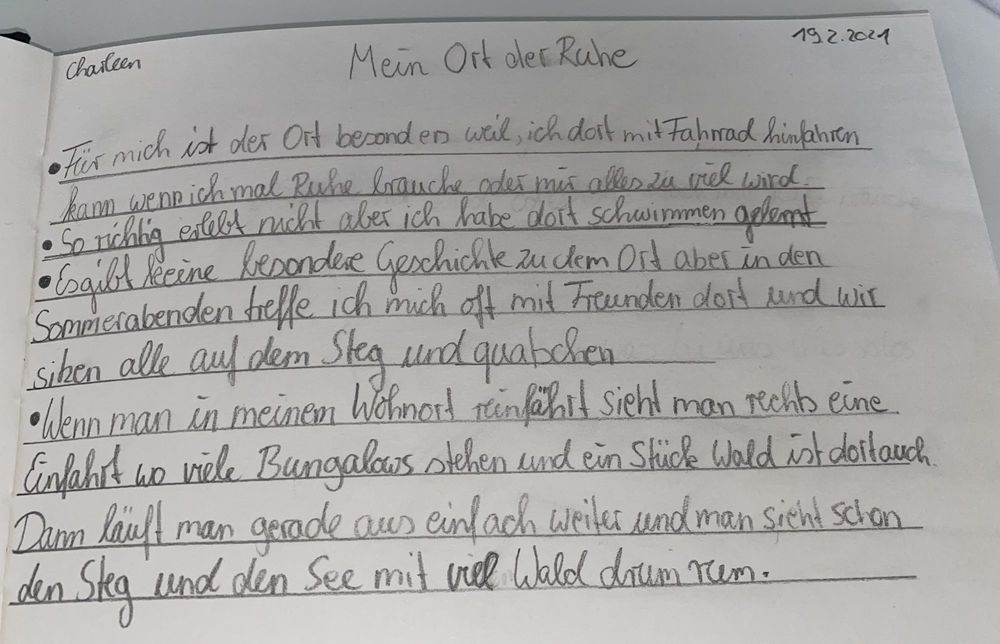 Charleen
Mein Ort der Ruhe
19.2.2021
• Für mich ist der Ort besonders weil, ich dort mit Fahrrad hinfahren
kann wenn ich mal Ruhe brauche oder mir alles zu viel wird.
• So richtig erlebt nicht aber ich habe dort schwimmen gelernt
• Es gibt keine besondere Geschichte zu dem Ort aber in den
Sommerabenden treffe ich mich oft mit Freunden dort und wir
sitzen alle auf dem Steg und quatschen
• Wenn man in meinem Wohnort reinfährt sieht man rechts eine
Einfahrt wo viele Bungalows stehen und ein Stück Wald ist dort auch.
Dann läuft man gerade aus einfach weiter und man sieht schon
den Steg und den See mit viel Wald drum rum.